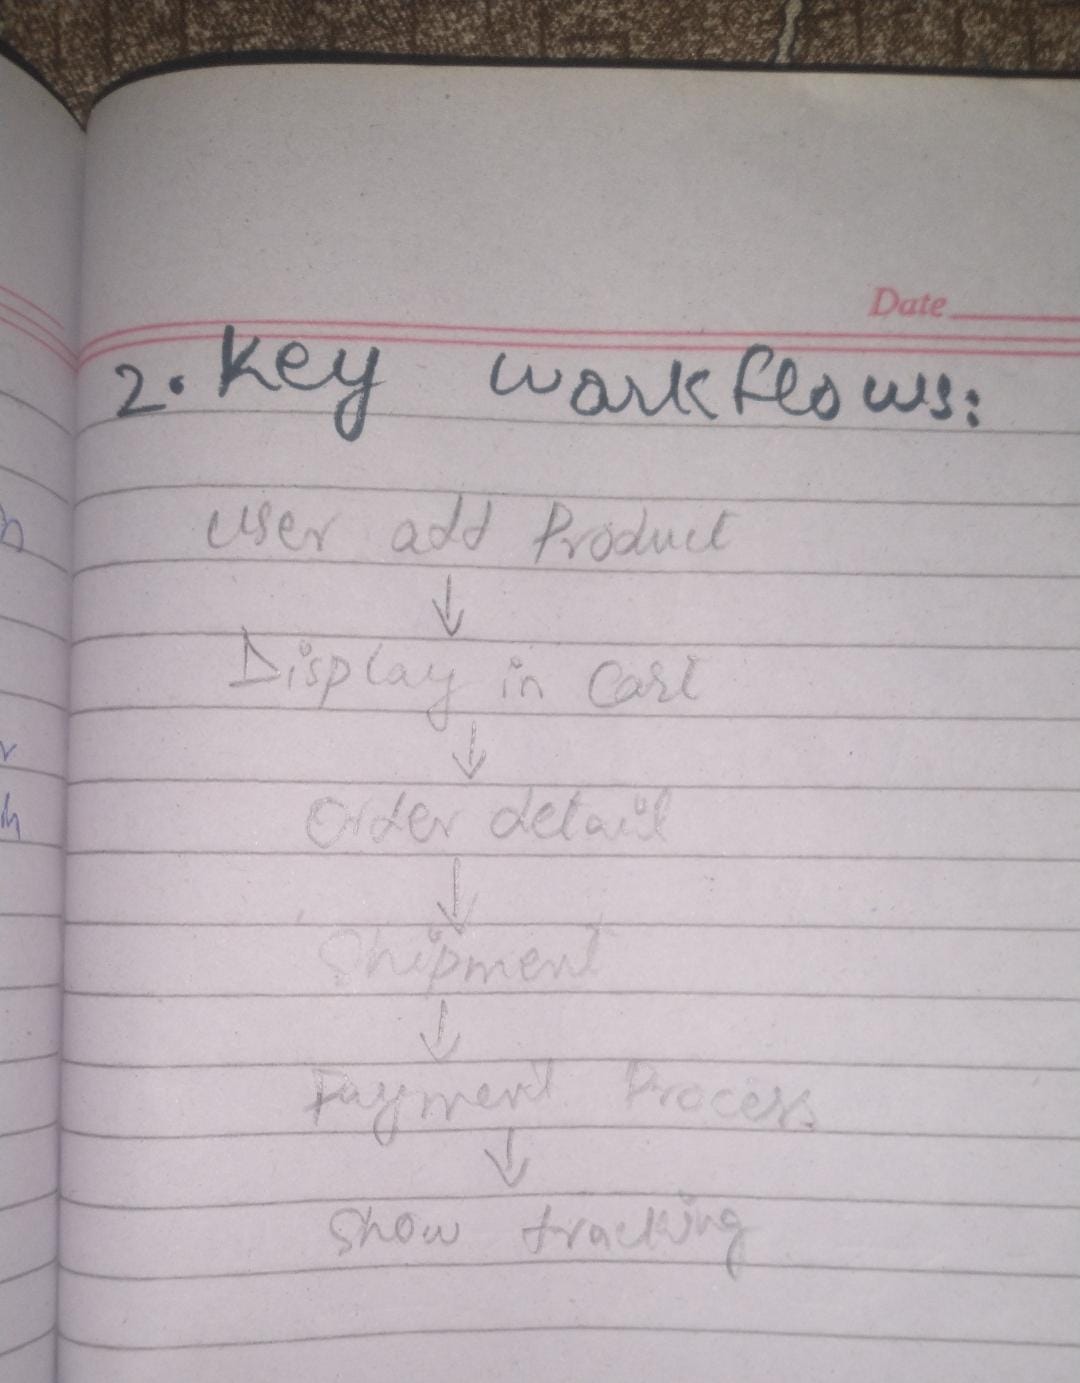 Date
2. Key workflows:
User add Product
↓
Display in Cart
↓
Order detail
↓
Shipment
↓
Payment Process
↓
Show tracking